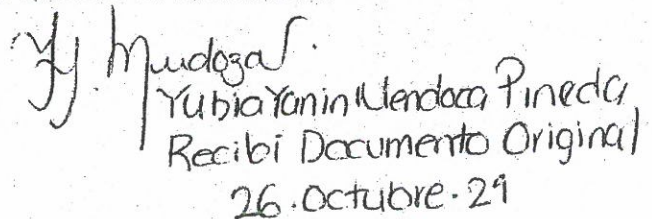 YJ Mendoza P.
Yubia Yanin Mendoza Pineda
Recibí Documento Original
26.octubre.21